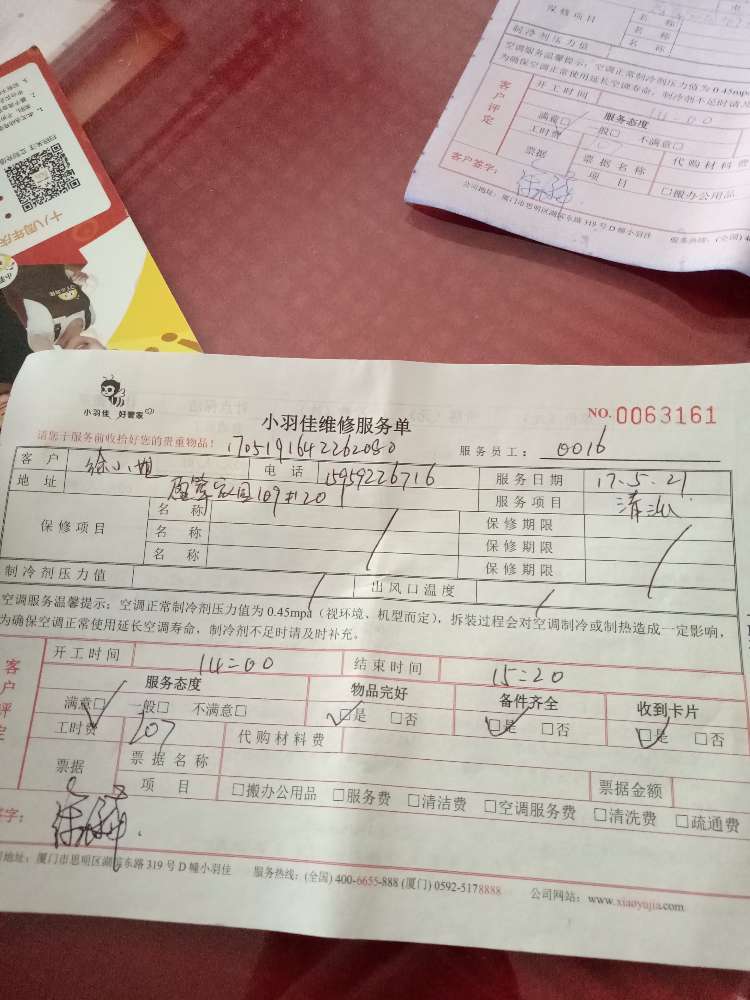 保修项目
名 称
名 称
名 称
制冷剂压力值
空调服务温馨提示：空调正常制冷剂压力值为 0.45mpa
为确保空调正常使用延长空调寿命，制冷剂不足时请及
客户评定
开工时间
14=00
服务态度
满意□ 一般□ 不满意□
工时费
代购材料费
票据
票据名称
项 目
□搬办公用品
客户签字：
公司地址：厦门市思明区湖滨东路 319 号 D 幢小羽佳
服务热线：(全国) 4
十八周年庆
小羽佳 好管家
小羽佳维修服务单
NO. 0063161
请您于服务前收拾好您的贵重物品！
1705191642262080
服务员工： 0016
客 户 徐小姐 电 话 15959226716 服务日期 17.5.21
地 址 109#120 服务项目 清洗
保修项目
名 称 保修期限
名 称 保修期限
名 称 保修期限
制冷剂压力值 / 出风口温度 /
空调服务温馨提示：空调正常制冷剂压力值为 0.45mpa（视环境、机型而定），拆装过程会对空调制冷或制热造成一定影响，
为确保空调正常使用延长空调寿命，制冷剂不足时请及时补充。
客户评定
开工时间 14=00 结束时间 15=20
服务态度 物品完好 备件齐全 收到卡片
满意□ 一般□ 不满意□ □是 □否 □是 □否 □是 □否
工时费 207 代购材料费
票据 票据名称 票据金额
项 目 □搬办公用品 □服务费 □清洁费 □空调服务费 □清洗费 □疏通费
签字：
司地址：厦门市思明区湖滨东路 319 号 D 幢小羽佳 服务热线：(全国) 400-6655-888 (厦门) 0592-5178888 公司网站：www.xiaoyujia.com